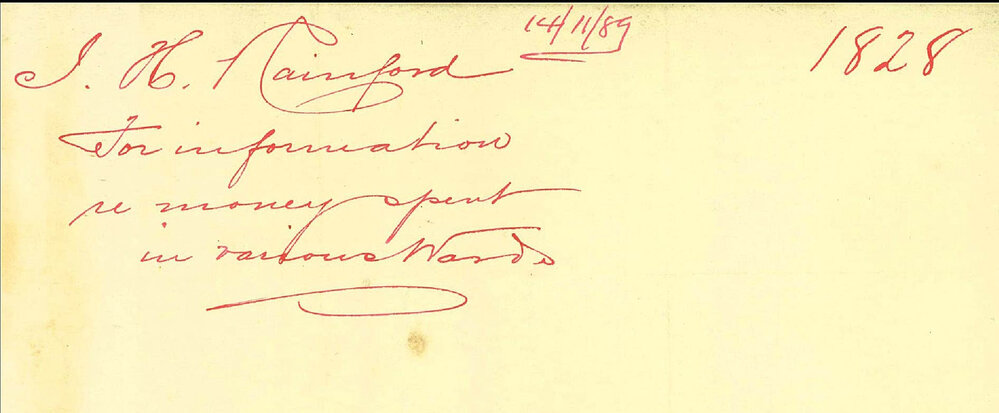 14/11/89
1828
J. H. Rainford
For information
re money spent
in various Wards